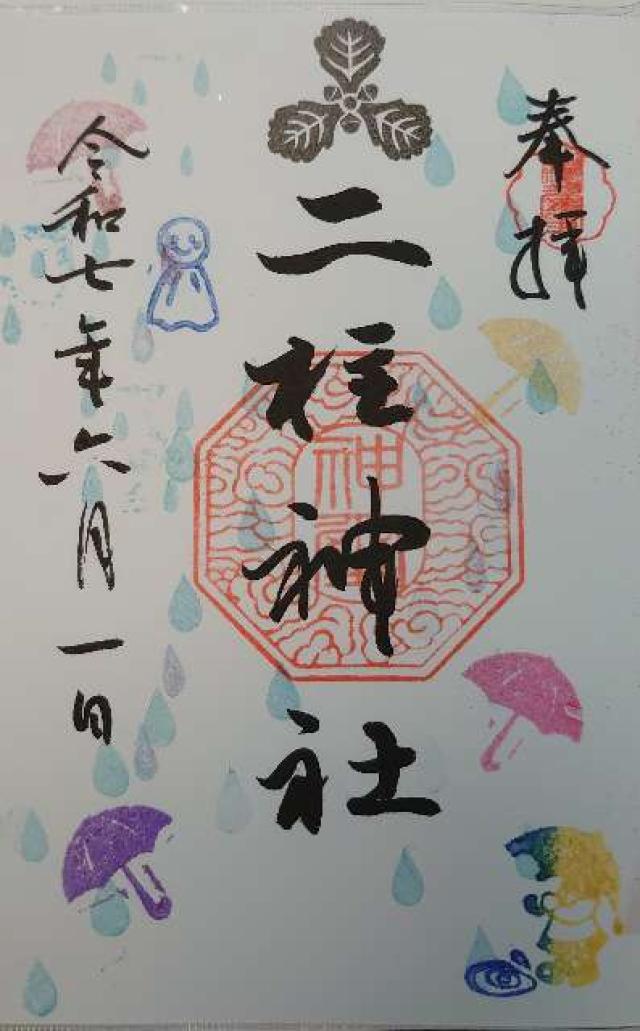 奉拝
二柱神社
令和七年六月一日